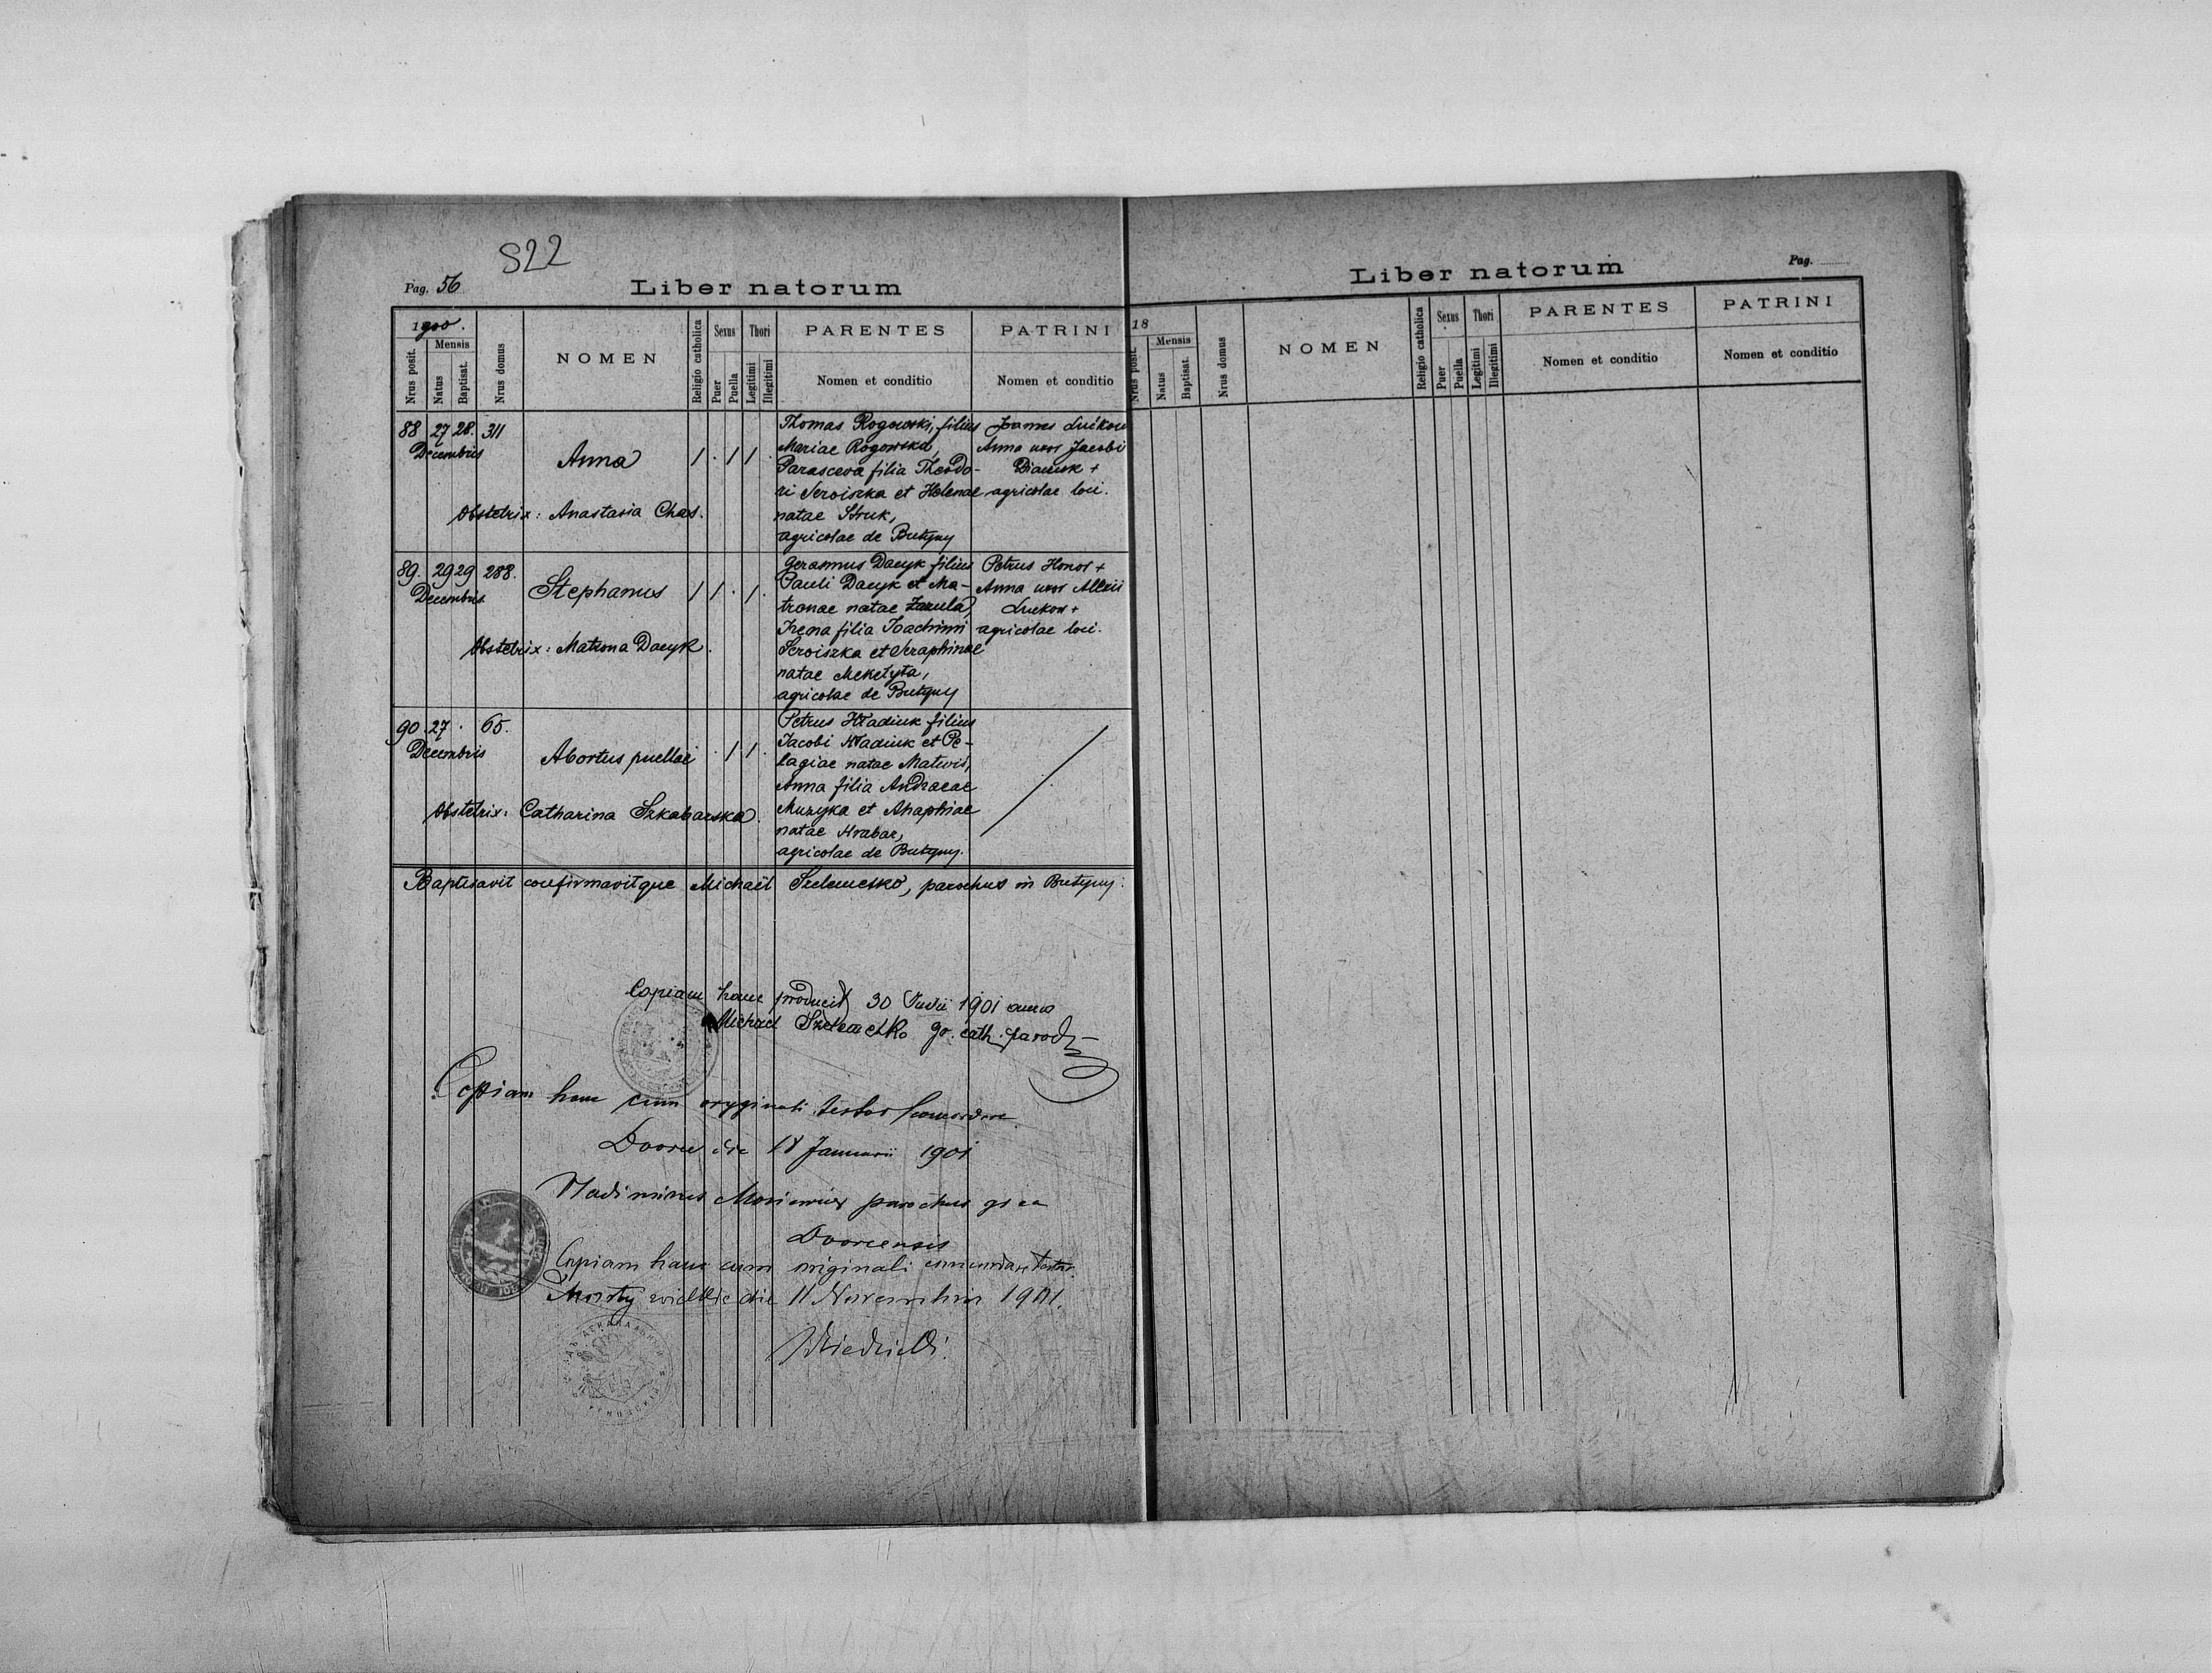 S22
Pag. 56
Liber natorum
1900.
Nrus posit.
Mensis
Natus
Baptisat.
Nrus domus
NOMEN
Religio catholica
Sexus
Puer
Puella
Thori
Legitimi
Illegitimi
PARENTES
Nomen et conditio
PATRINI
Nomen et conditio
88 27 28. 311
Decembris
Anna
1 . 1 1 .
Obstetrix: Anastasia Chas.
Thomas Rogowski, filius
Mariae Rogowska,
Parasceva filia Theodo-
ri Seroiszka et Helenae
natae Struk,
agricolae de Butyny
Joannes
Anna uxor Jacobi
+
agricolae loci.
89. 29 29 288.
Decembris
Stephanus
1 1 . 1 .
Obstetrix: Matrona Dacyk.
Gerasmus Dacyk filius
Pauli Dacyk et Ma-
tronae natae Zazula,
Irena filia Joachimi
Seroiszka et Seraphinae
natae Mekelyta,
agricolae de Butyny
Petrus Honor +
Anna uxor Alexii
Luckow +
agricolae loci.
90. 27 . 65.
Decembris
Abortus puellae
. 1 1 .
Obstetrix: Catharina Szkabarska.
Petrus Hładiuk filius
Jacobi Hładiuk et Pe-
lagiae natae Matwis,
Anna filia Andreae
Muzyka et Ahaphiae
natae Hrabar,
agricolae de Butyny.
Baptisavit confirmavitque Michaël Szelemetko, parochus in Butyny.
Copiam hanc producit 30 1901 anno
Michael Szelemetko gr. cath. paroch
Copiam hanc cum oryginali testor
die 18 Januarii 1901
Vladimirus parochus
Copiam hanc cum originali testor.
Mosty wielkie die 11 Novembris 1901.
Liber natorum
Pag.
18
Nrus posit.
Mensis
Natus
Baptisat.
Nrus domus
NOMEN
Religio catholica
Sexus
Puer
Puella
Thori
Legitimi
Illegitimi
PARENTES
Nomen et conditio
PATRINI
Nomen et conditio